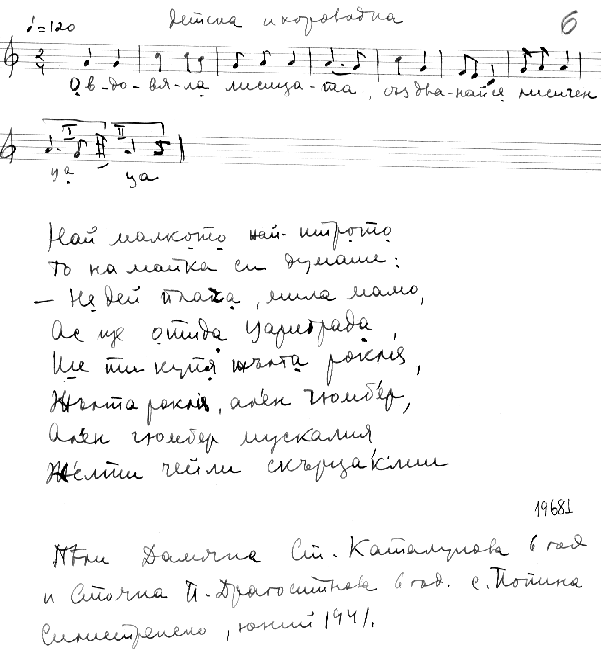 ♩=120 Детска и хороводна 6
Ов-до-вя-ла лисица-та, със два-найся лисичен
ца ца
Най малкото най-итрото
То на майка си думаше:
— Недей плака, мила мамо,
Ас ще отида Цариграда,
Ще ти купя жълта рокля,
Жълта рокля, ален гюмбер,
Ален гюмбер мускалия
Жёлти чейли скърцаклии
19681
Пели Дамяна Ст. Каталунова 6 год
и Стояна П. Драгостинова 6 год. с. Попина
Силистренско, юний 1941.